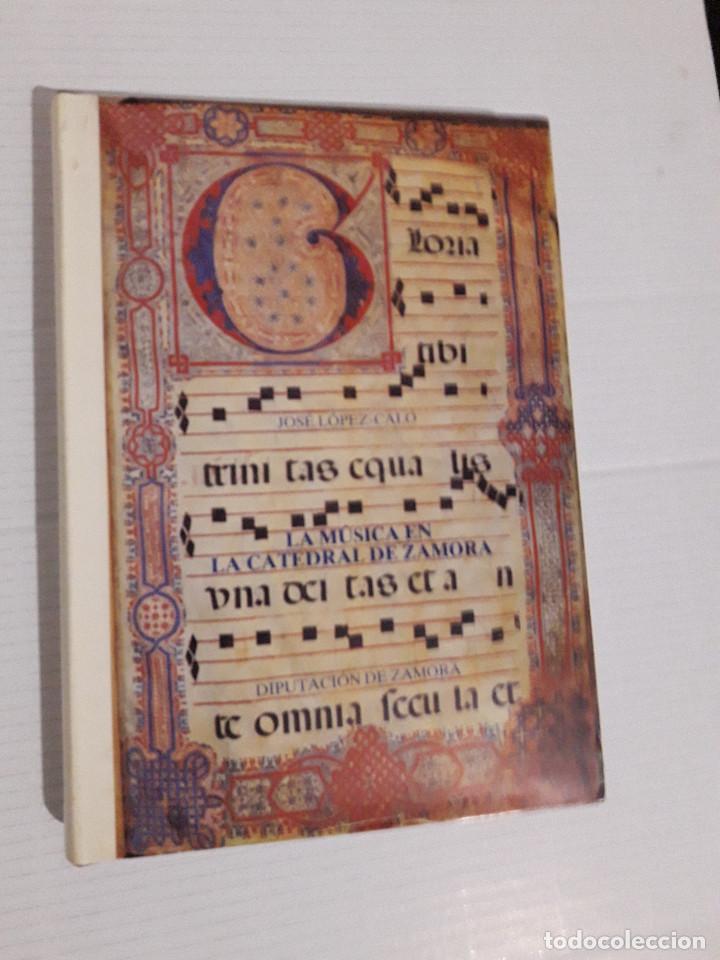 Gloria
tibi
JOSÉ LÓPEZ-CALO
trini tas equa lis
LA MÚSICA EN
LA CATEDRAL DE ZAMORA
vna dei tas et a n
DIPUTACIÓN DE ZAMORA
te omnia secu la et
todocoleccion
todocoleccion.net